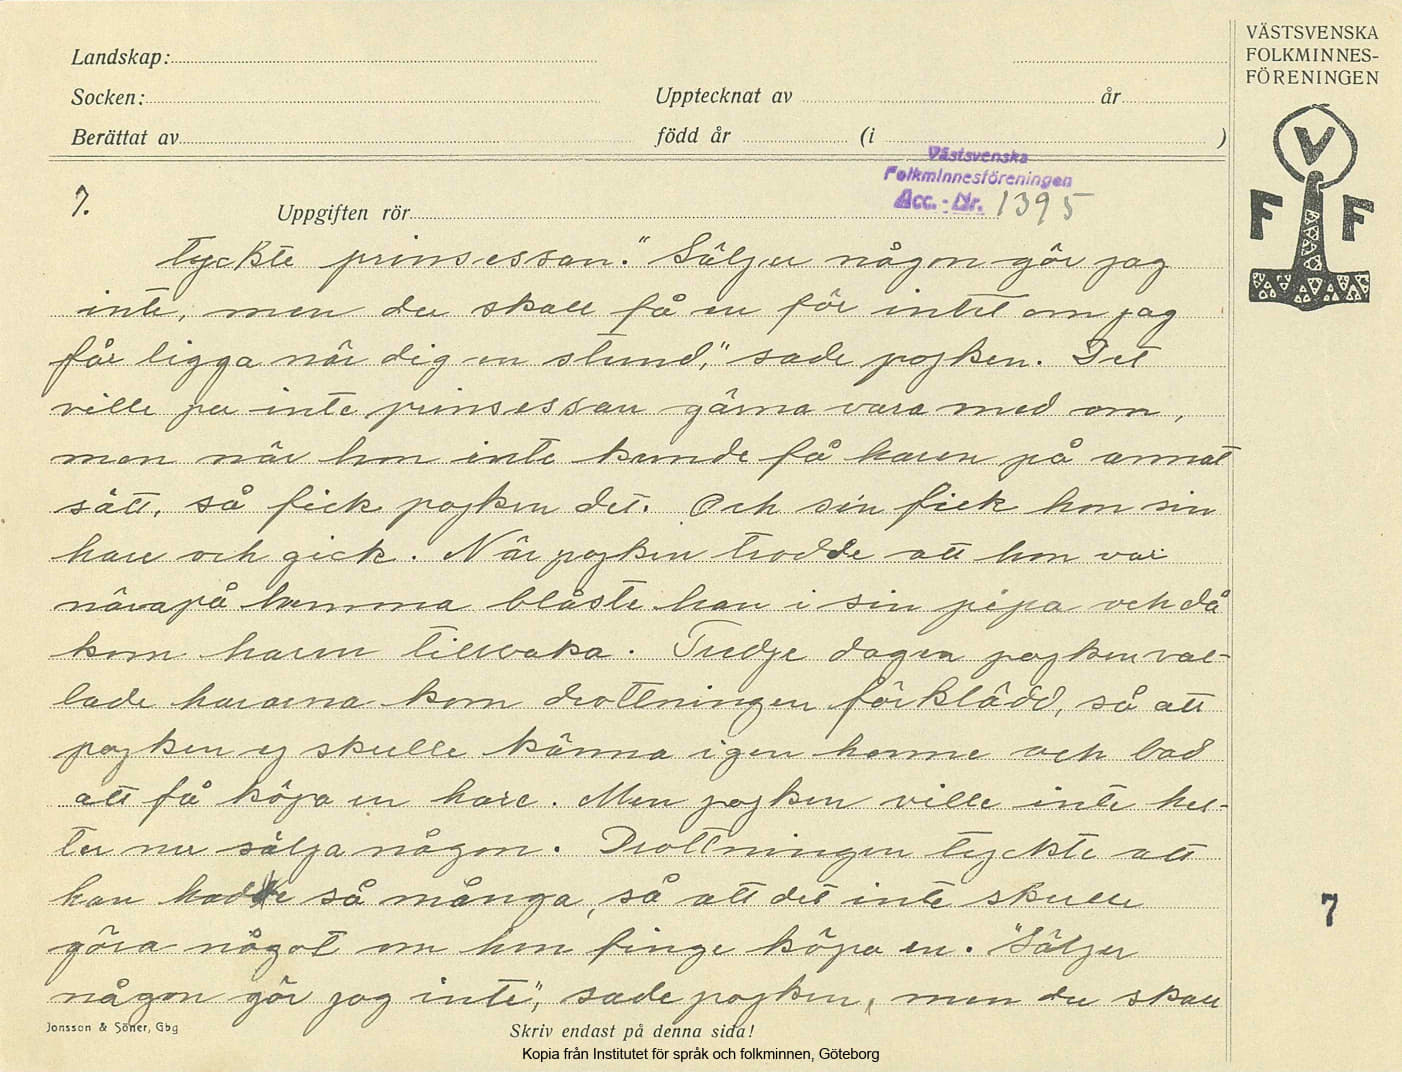 Landskap:
Socken:
Upptecknat av
år
Berättat av
född år
(i
)
VÄSTSVENSKA
FOLKMINNES-
FÖRENINGEN
V
F F
Västsvenska
Folkminnesföreningen
Acc. - Nr. 1395
7.
Uppgiften rör
tyckte prinsessan." Säljer någon gör jag
inte, men du skall få en för intet om jag
får ligga när dig en stund," sade pojken. Det
ville ju inte prinsessan gärna vara med om,
men när hon inte kunde få haren på annat
sätt, så fick pojken det. Och sin fick hon sin
hare och gick. När pojken trodde att hon var
närapå hemma blåste han i sin pipa och då
kom haren tillbaka. Tredje dagen pojken val-
lade hararna kom drottningen förklädd, så att
pojken ej skulle känna igen henne och bad
att få köpa en hare. Men pojken ville inte hel-
ler nu sälja någon. Drottningen tyckte att
han hadde så många, så att det inte skulle
göra något om hon finge köpa en. "Säljer
någon gör jag inte", sade pojken, men du skall
7
Jonsson & Söner, Gbg
Skriv endast på denna sida!
Kopia från Institutet för språk och folkminnen, Göteborg